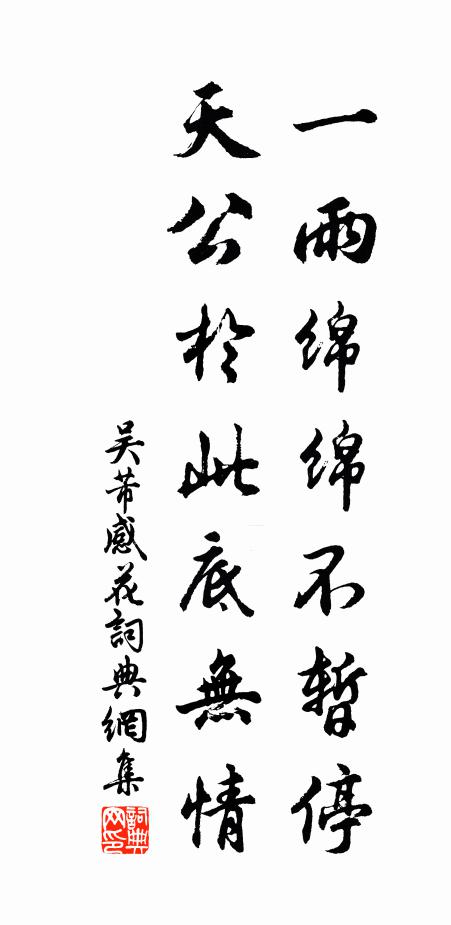 一雨绵绵不暫停
天公於此底無情
吴芾感花詞典網集
詞典網印